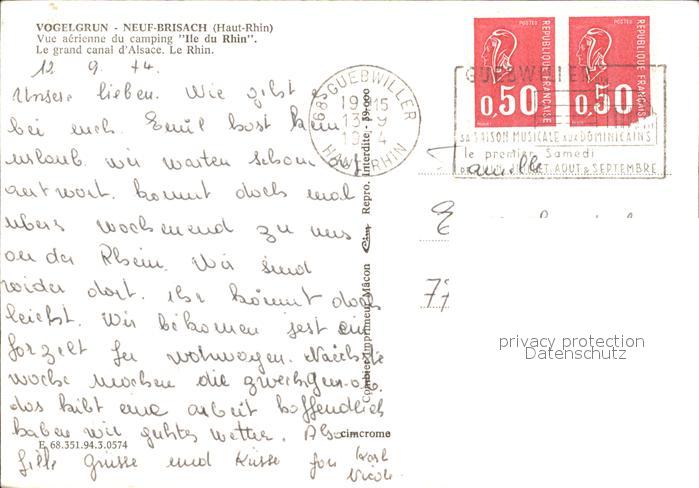 VOGELGRUN - NEUF-BRISACH (Haut-Rhin)
Vue aérienne du camping "Ile du Rhin".
Le grand canal d'Alsace. Le Rhin.
12. 9. 74.
Unsere lieben. Wie gehts
bei euch. Emil hast kein
urlaub. wir warten schon auf
antwort. kommt doch mal
übers wochenend zu uns
an der Rhein. Wir sind
wider dort. ihr könnt doch
leicht. Wir bekomen jest ein
forzelt für wohnwagen. Nächste
woche machen die zwerchgen
das gibt eine arbeit hoffendlich
haben wir guhtes wetter. Also
fiele grüsse und küsse fon Karl
Nicole
E 68.351.94.3.0574
cimcrome
Combier Imprimeur Mâcon Cim Repro. interdite
68 GUEBWILLER
HAUT-RHIN
POSTES
REPUBLIQUE FRANÇAISE
0,50
POSTES
REPUBLIQUE FRANÇAISE
0,50
GUEBWILLER
SA SAISON MUSICALE AUX DOMINICAINS
le premier Samedi
JUILLET AOUT & SEPTEMBRE
Familie
E
77
privacy protection
Datenschutz